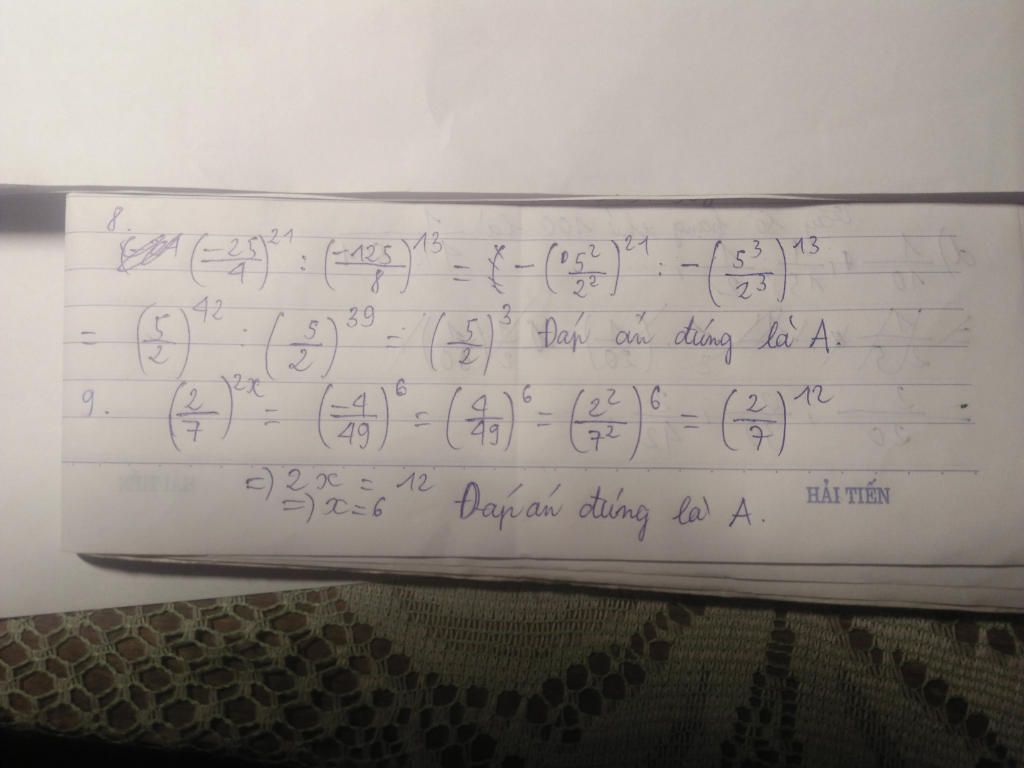 8.
(-25/4)^21 : (-125/8)^13 = - (5²/2²)^21 : - (5³/2³)^13
= (5/2)^42 : (5/2)^39 = (5/2)^3 Đáp án đúng là A.
9. (2/7)^2x = (-4/49)^6 = (4/49)^6 = (2²/7²)^6 = (2/7)^12
=) 2x = 12
=) x = 6 Đáp án đúng là A.
HẢI TIẾN